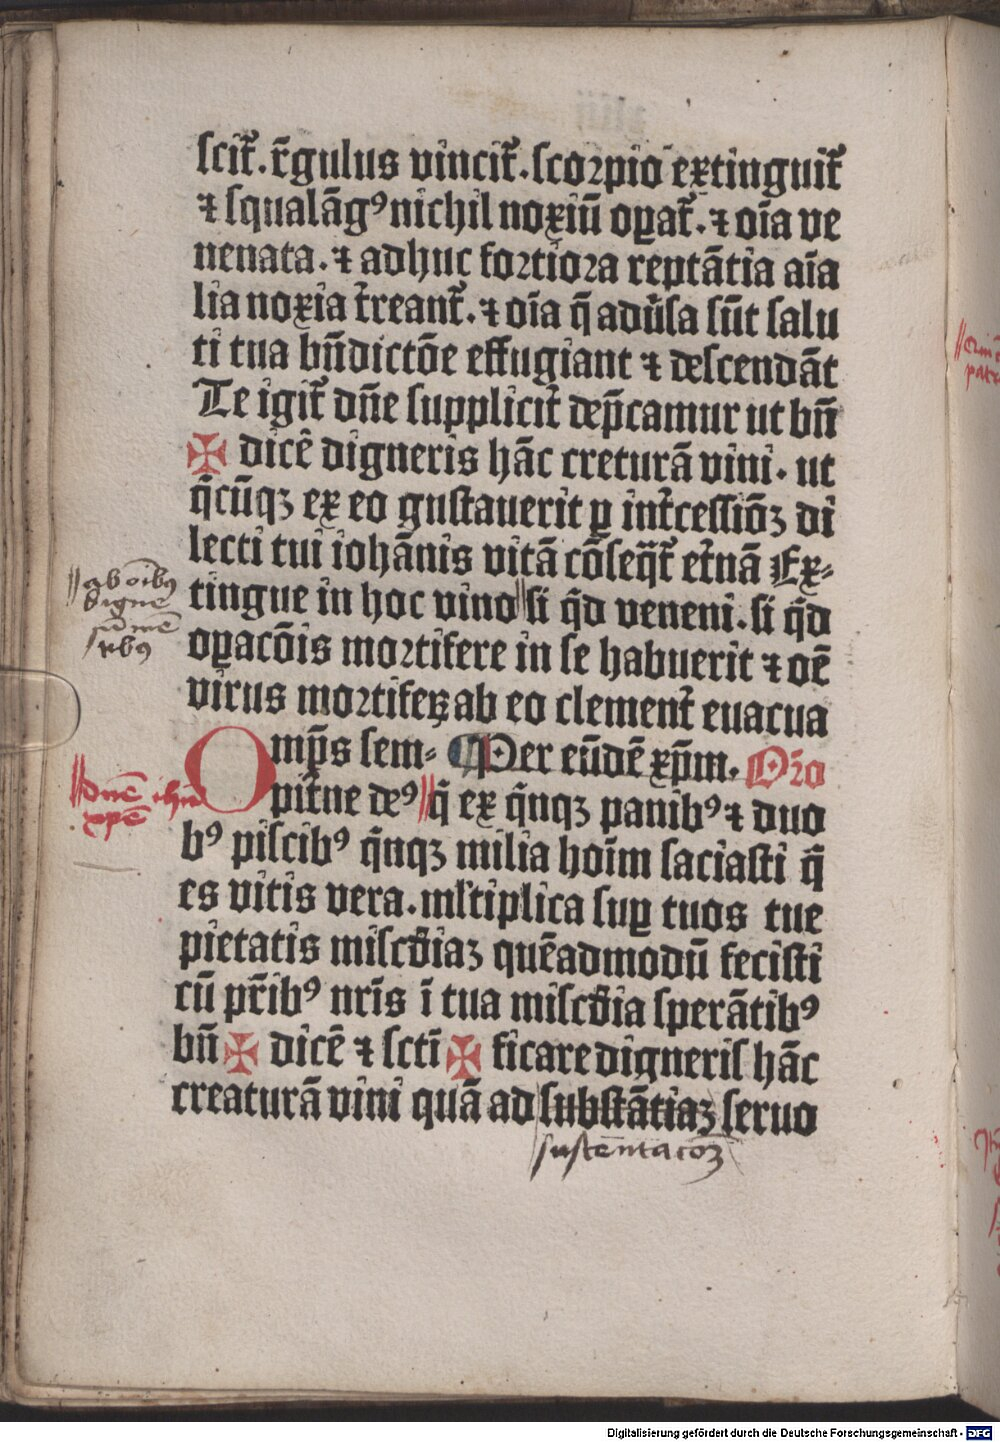 scit̄. r̄gulus vincit̄. scorpio extinguit̄
⁊ squalāgꝰ nichil noxiū oꝑat̄. ⁊ oīa ve
nenata. ⁊ adhuc fortiora reptātia aīa
lia noxia t̄reant̄. ⁊ oīa q̄ adūsa sūt salu
ti tua bn̄dictōe effugiant ⁊ descendāt
Te igit̄ dn̄e supplicit̄ dep̄camur ut bn̄
✠ dicē digneris hāc creturā vini. ut
q̄cūqꝫ ex eo gustauerit ꝑ int̄cessiōꝫ di
lecti tui iohānis vitā cōseq̄t̄ et̄nā Ex⸗
tingue in hoc vino si q̄d veneni. si q̄d
oꝑacōis mortifere in se habuerit ⁊ oē
virus mortifeꝝ ab eo clement̄ euacua
Omp̄s sem⸗ Per eūdē xp̄m. Oro
pit̄ne deꝰ q̄ ex q̄nqꝫ panibꝰ ⁊ duo
bꝰ piscibꝰ q̄nqꝫ milia hoīm saciasti q̄
es vitis vera. ml̄tiplica suꝑ tuos tue
pietatis misc̄diaꝫ quēadmodū fecisti
cū pr̄ibꝰ nr̄is ī tua misc̄dia sperātibꝰ
bn̄ ✠ dicē ⁊ sctī ✠ ficare digneris hāc
creaturā vini quā ad substātiaꝫ seruo
sustentacōꝫ
ab oībꝰ
dn̄e ihū
xp̄e
Digitalisierung gefördert durch die Deutsche Forschungsgemeinschaft - DFG